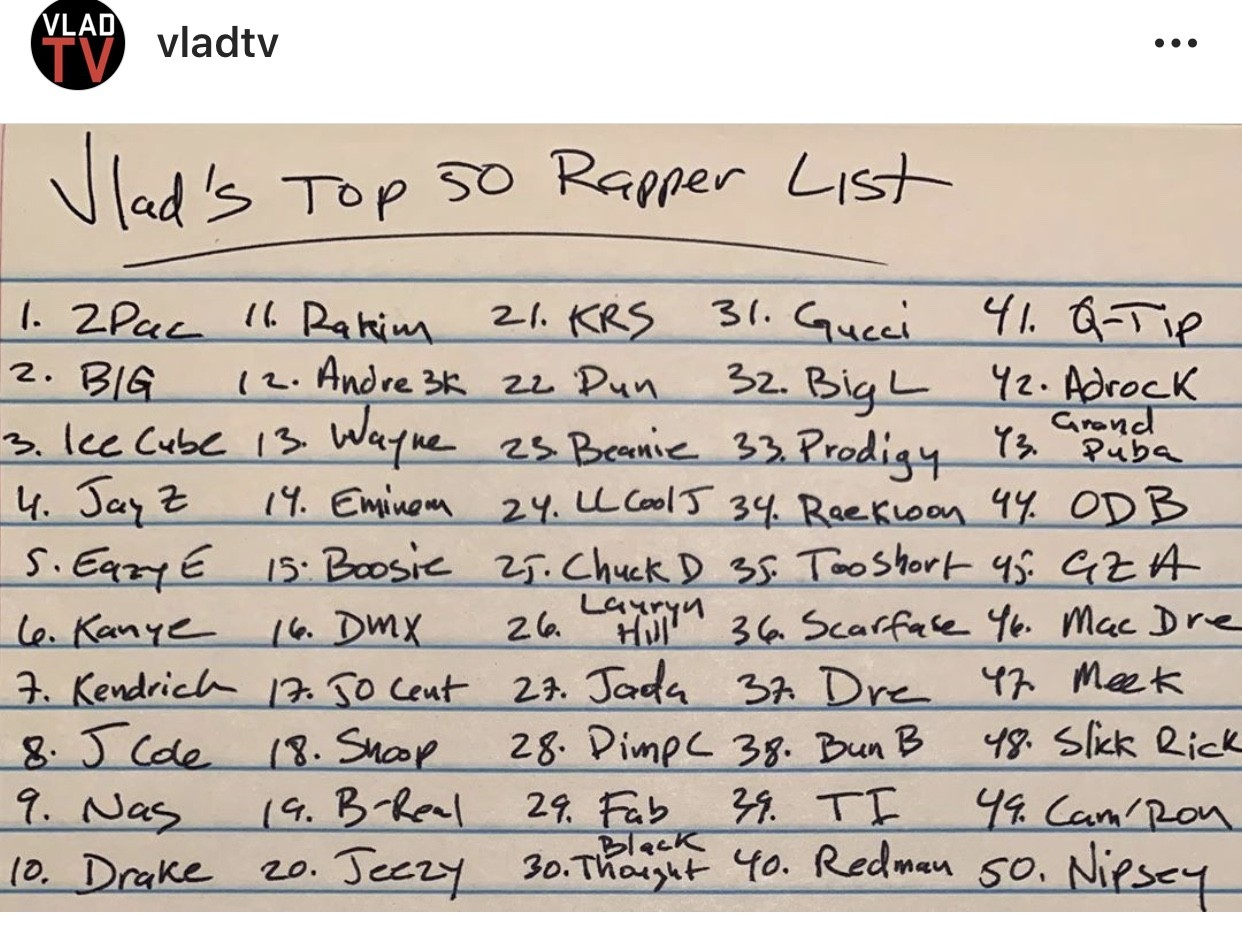 VLAD
TV
vladtv
Vlad's Top 50 Rapper List
1. 2Pac 11. Rakim 21. KRS 31. Gucci 41. Q-Tip
2. BIG 12. Andre 3K 22. Pun 32. Big L 42. Adrock
3. Ice Cube 13. Wayne 23. Beanie 33. Prodigy 43. Grand Puba
4. Jay Z 14. Eminem 24. LL Cool J 34. Raekwon 44. ODB
5. Eazy E 15. Boosie 25. Chuck D 35. Too Short 45. GZA
6. Kanye 16. DMX 26. Lauryn Hill 36. Scarface 46. Mac Dre
7. Kendrick 17. 50 Cent 27. Jada 37. Dre 47. Meek
8. J Cole 18. Snoop 28. Pimp C 38. Bun B 48. Slick Rick
9. Nas 19. B-Real 29. Fab 39. TI 49. Cam'Ron
10. Drake 20. Jeezy 30. Black Thought 40. Redman 50. Nipsey